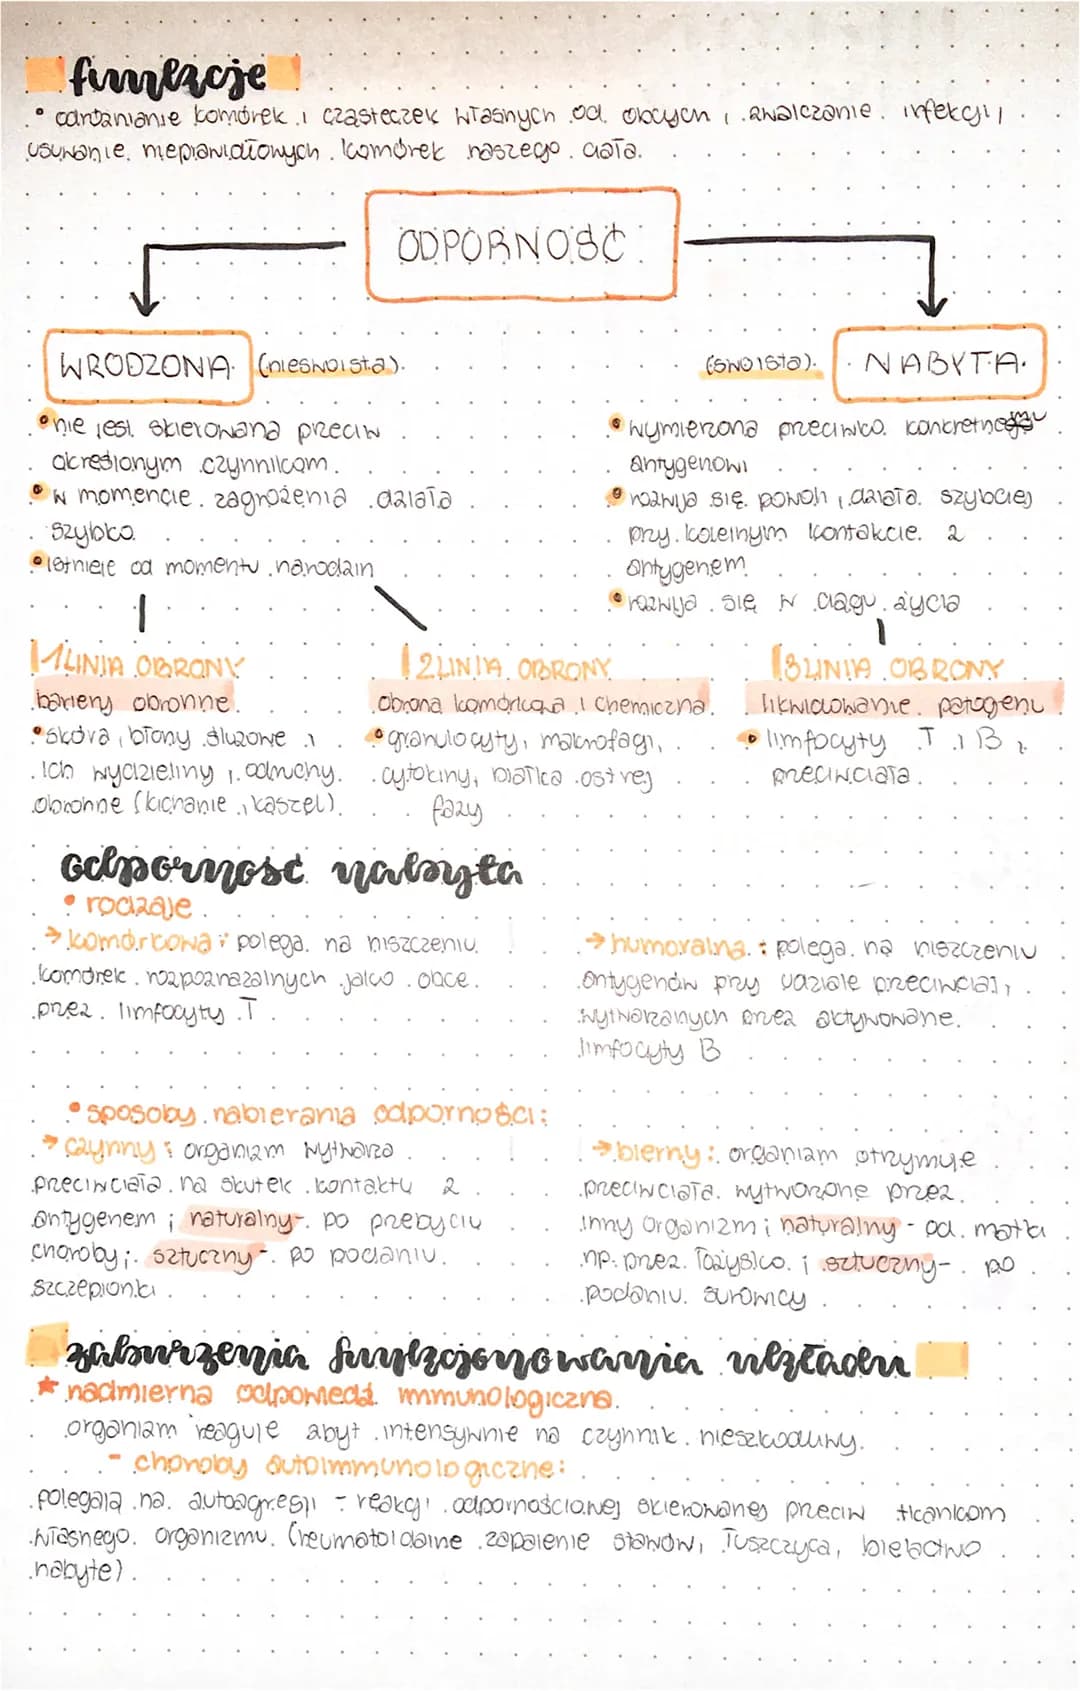 funkcje
• odróżnianie komórek i cząsteczek własnych od obcych, zwalczanie infekcji,
usuwanie nieprawidłowych komórek naszego ciała.
ODPORNOŚĆ
WRODZONA (nieswoista)
(swoista) NABYTA
• nie jest skierowana przeciw
określonym czynnikom
• w momencie zagrożenia działa
szybko
• istnieje od momentu narodzin
• wymierzona przeciwko konkretnemu
antygenowi
• rozwija się powoli, działa szybciej
przy kolejnym kontakcie z
antygenem
• rozwija się w ciągu życia
1 LINIA OBRONY
bariery obronne
• skóra, błony śluzowe i
ich wydzieliny, odruchy
obronne (kichanie, kaszel)
2 LINIA OBRONY
obrona komórkowa i chemiczna
• granulocyty, makrofagi,
cytokiny, białka ostrej
fazy
3 LINIA OBRONY
likwidowanie patogenu
• limfocyty T i B,
przeciwciała
odporność nabyta
• rodzaje
→ komórkowa: polega na niszczeniu
komórek rozpoznazalnych jako obce
przez limfocyty T
→ humoralna: polega na niszczeniu
antygenów przy udziale przeciwciał,
wytwarzanych przez aktywowane
limfocyty B
• sposoby nabierania odporności:
→ czynny: organizm wytwarza
przeciwciała na skutek kontaktu z
antygenem; naturalny - po przebyciu
choroby; sztuczny - po podaniu
szczepionki
→ bierny: organizm otrzymuje
przeciwciała wytworzone przez
inny organizm; naturalny - od matki
np. przez łożysko; sztuczny - po
podaniu surowicy
zaburzenia funkcjonowania układu
★ nadmierna odpowiedź immunologiczna
organizm reaguje zbyt intensywnie na czynnik nieszkodliwy.
- choroby autoimmunologiczne:
polegają na autoagresji - reakcji odpornościowej skierowanej przeciw tkankom
własnego organizmu (reumatoidalne zapalenie stawów, łuszczyca, bielactwo
nabyte)